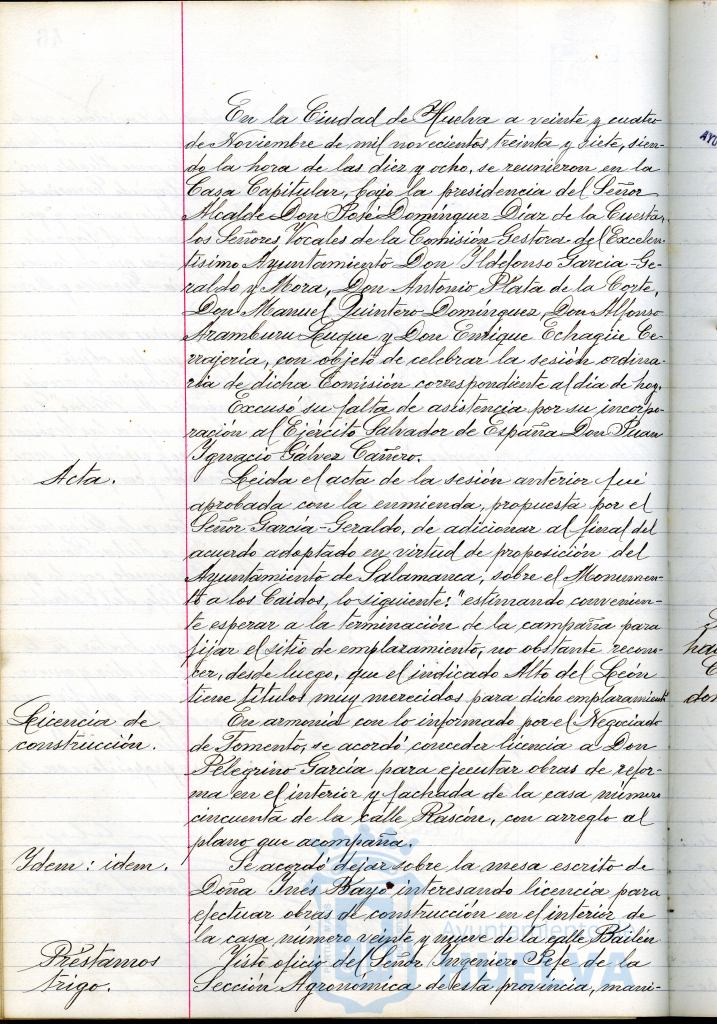 En la Ciudad de Huelva a veinte y cuatro
de Noviembre de mil novecientos treinta y siete, sien-
do la hora de las diez y ocho, se reunieron en la
Casa Capitular, bajo la presidencia del Señor
Alcalde Don José Domínguez Díaz de la Cuesta,
los Señores Vocales de la Comisión Gestora del Excelen-
tísimo Ayuntamiento Don Yldefonso García-Ge-
raldo y Mora, Don Antonio Plata de la Corte,
Don Manuel Quintero Domínguez, Don Alfonso
Aramburu Luque y Don Enrique Echagüe Ce-
rrajería, con objeto de celebrar la sesión ordina-
ria de dicha Comisión correspondiente al día de hoy.
Excusó su falta de asistencia por su incorpo-
ración al Ejército Salvador de España Don Juan
Ygnacio Gálvez Cañero.
Acta.
Leida el acta de la sesión anterior fué
aprobada con la enmienda, propuesta por el
Señor García-Geraldo, de adicionar al final del
acuerdo adoptado en virtud de proposición del
Ayuntamiento de Salamanca, sobre el Monumen-
to a los Caidos, lo siguiente: "estimando convenien-
te esperar a la terminación de la campaña para
fijar el sitio de emplazamiento, no obstante recono-
cer, desde luego, que el indicado Alto del León
tiene títulos muy merecidos para dicho emplazamiento"
Licencia de
construcción.
En armonía con lo informado por el Negociado
de Fomento, se acordó conceder licencia a Don
Pelegrino García para ejecutar obras de refor-
ma en el interior y fachada de la casa número
cincuenta de la calle Rascón, con arreglo al
plano que acompaña.
Ydem: idem.
Se acordó dejar sobre la mesa escrito de
Doña Inés Bayo interesando licencia para
efectuar obras de construcción en el interior de
la casa número veinte y nueve de la calle Bailén
Préstamos
trigo.
Visto oficio del Señor Yngeniero Jefe de la
Sección Agronómica de esta provincia, mani-
Ayuntamiento de
HUELVA